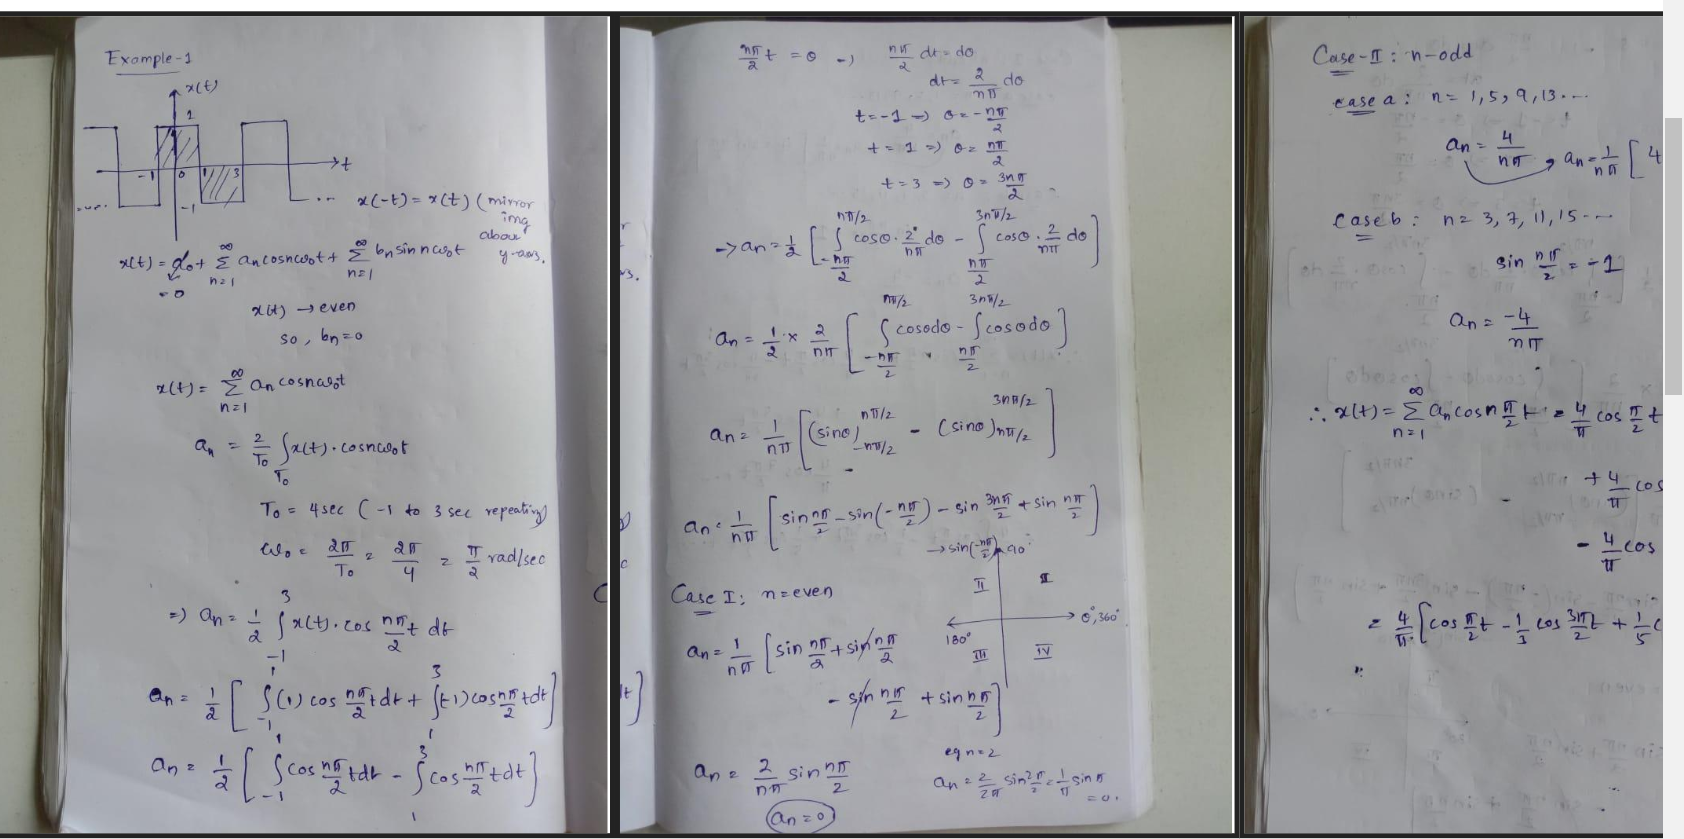 Example-1
x(t)
1
-1 0 1 3
t
-1
... x(-t) = x(t) (mirror
img
about
y-axis.
x(t) = a₀ + ∞ Σ n=1 aₙ cosnω₀t + ∞ Σ n=1 bₙ sin nω₀t
= 0
x(t) → even
so, bₙ=0
x(t) = ∞ Σ n=1 aₙ cosnω₀t
aₙ = 2/T₀ ∫T₀ x(t)·cosnω₀t
T₀ = 4sec (-1 to 3 sec repeating)
ω₀ = 2π/T₀ = 2π/4 = π/2 rad/sec
=) aₙ = 1/2 ∫₋₁³ x(t)·cos nπ/2 t dt
aₙ = 1/2 [ ∫₋₁¹ (1) cos nπ/2 t dt + ∫₁³ (-1) cos nπ/2 t dt ]
aₙ = 1/2 [ ∫₋₁¹ cos nπ/2 t dt - ∫₁³ cos nπ/2 t dt ]
nπ/2 t = θ → nπ/2 dt = dθ
dt = 2/nπ dθ
t = -1 => θ = -nπ/2
t = 1 => θ = nπ/2
t = 3 => θ = 3nπ/2
→ aₙ = 1/2 [ ∫ -nπ/2 nπ/2 cosθ · 2/nπ dθ - ∫ nπ/2 3nπ/2 cosθ · 2/nπ dθ ]
aₙ = 1/2 × 2/nπ [ ∫ -nπ/2 nπ/2 cosθdθ - ∫ nπ/2 3nπ/2 cosθdθ ]
aₙ = 1/nπ [ (sinθ) -nπ/2 nπ/2 - (sinθ) nπ/2 3nπ/2 ]
aₙ = 1/nπ [ sin nπ/2 - sin(-nπ/2) - sin 3nπ/2 + sin nπ/2 ]
→ sin(-nπ/2) 90°
II I
0°, 360°
180°
III IV
Case I: n=even
aₙ = 1/nπ [ sin nπ/2 + sin nπ/2
- sin nπ/2 + sin nπ/2 ]
aₙ = 2/nπ sin nπ/2
aₙ = 0
eg n=2
aₙ = 2/2π sin 2π/2 = 1/π sin π
= 0.
Case-II: n-odd
case a: n = 1, 5, 9, 13 ...
aₙ = 4/nπ aₙ = 1/nπ [ 4
Case b: n = 3, 7, 11, 15 ...
sin nπ/2 = -1
aₙ = -4/nπ
∴ x(t) = ∞ Σ n=1 aₙ cos n π/2 t = 4/π cos π/2 t
+ 4/π cos
- 4/π cos
= 4/π [ cos π/2 t - 1/3 cos 3π/2 t + 1/5 c